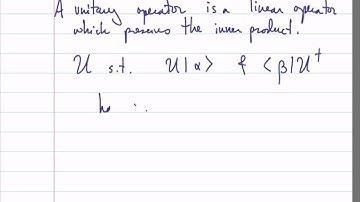 A unitary operator is a linear operator
which preserves the inner product.
U s.t. U|α> & <β|U†